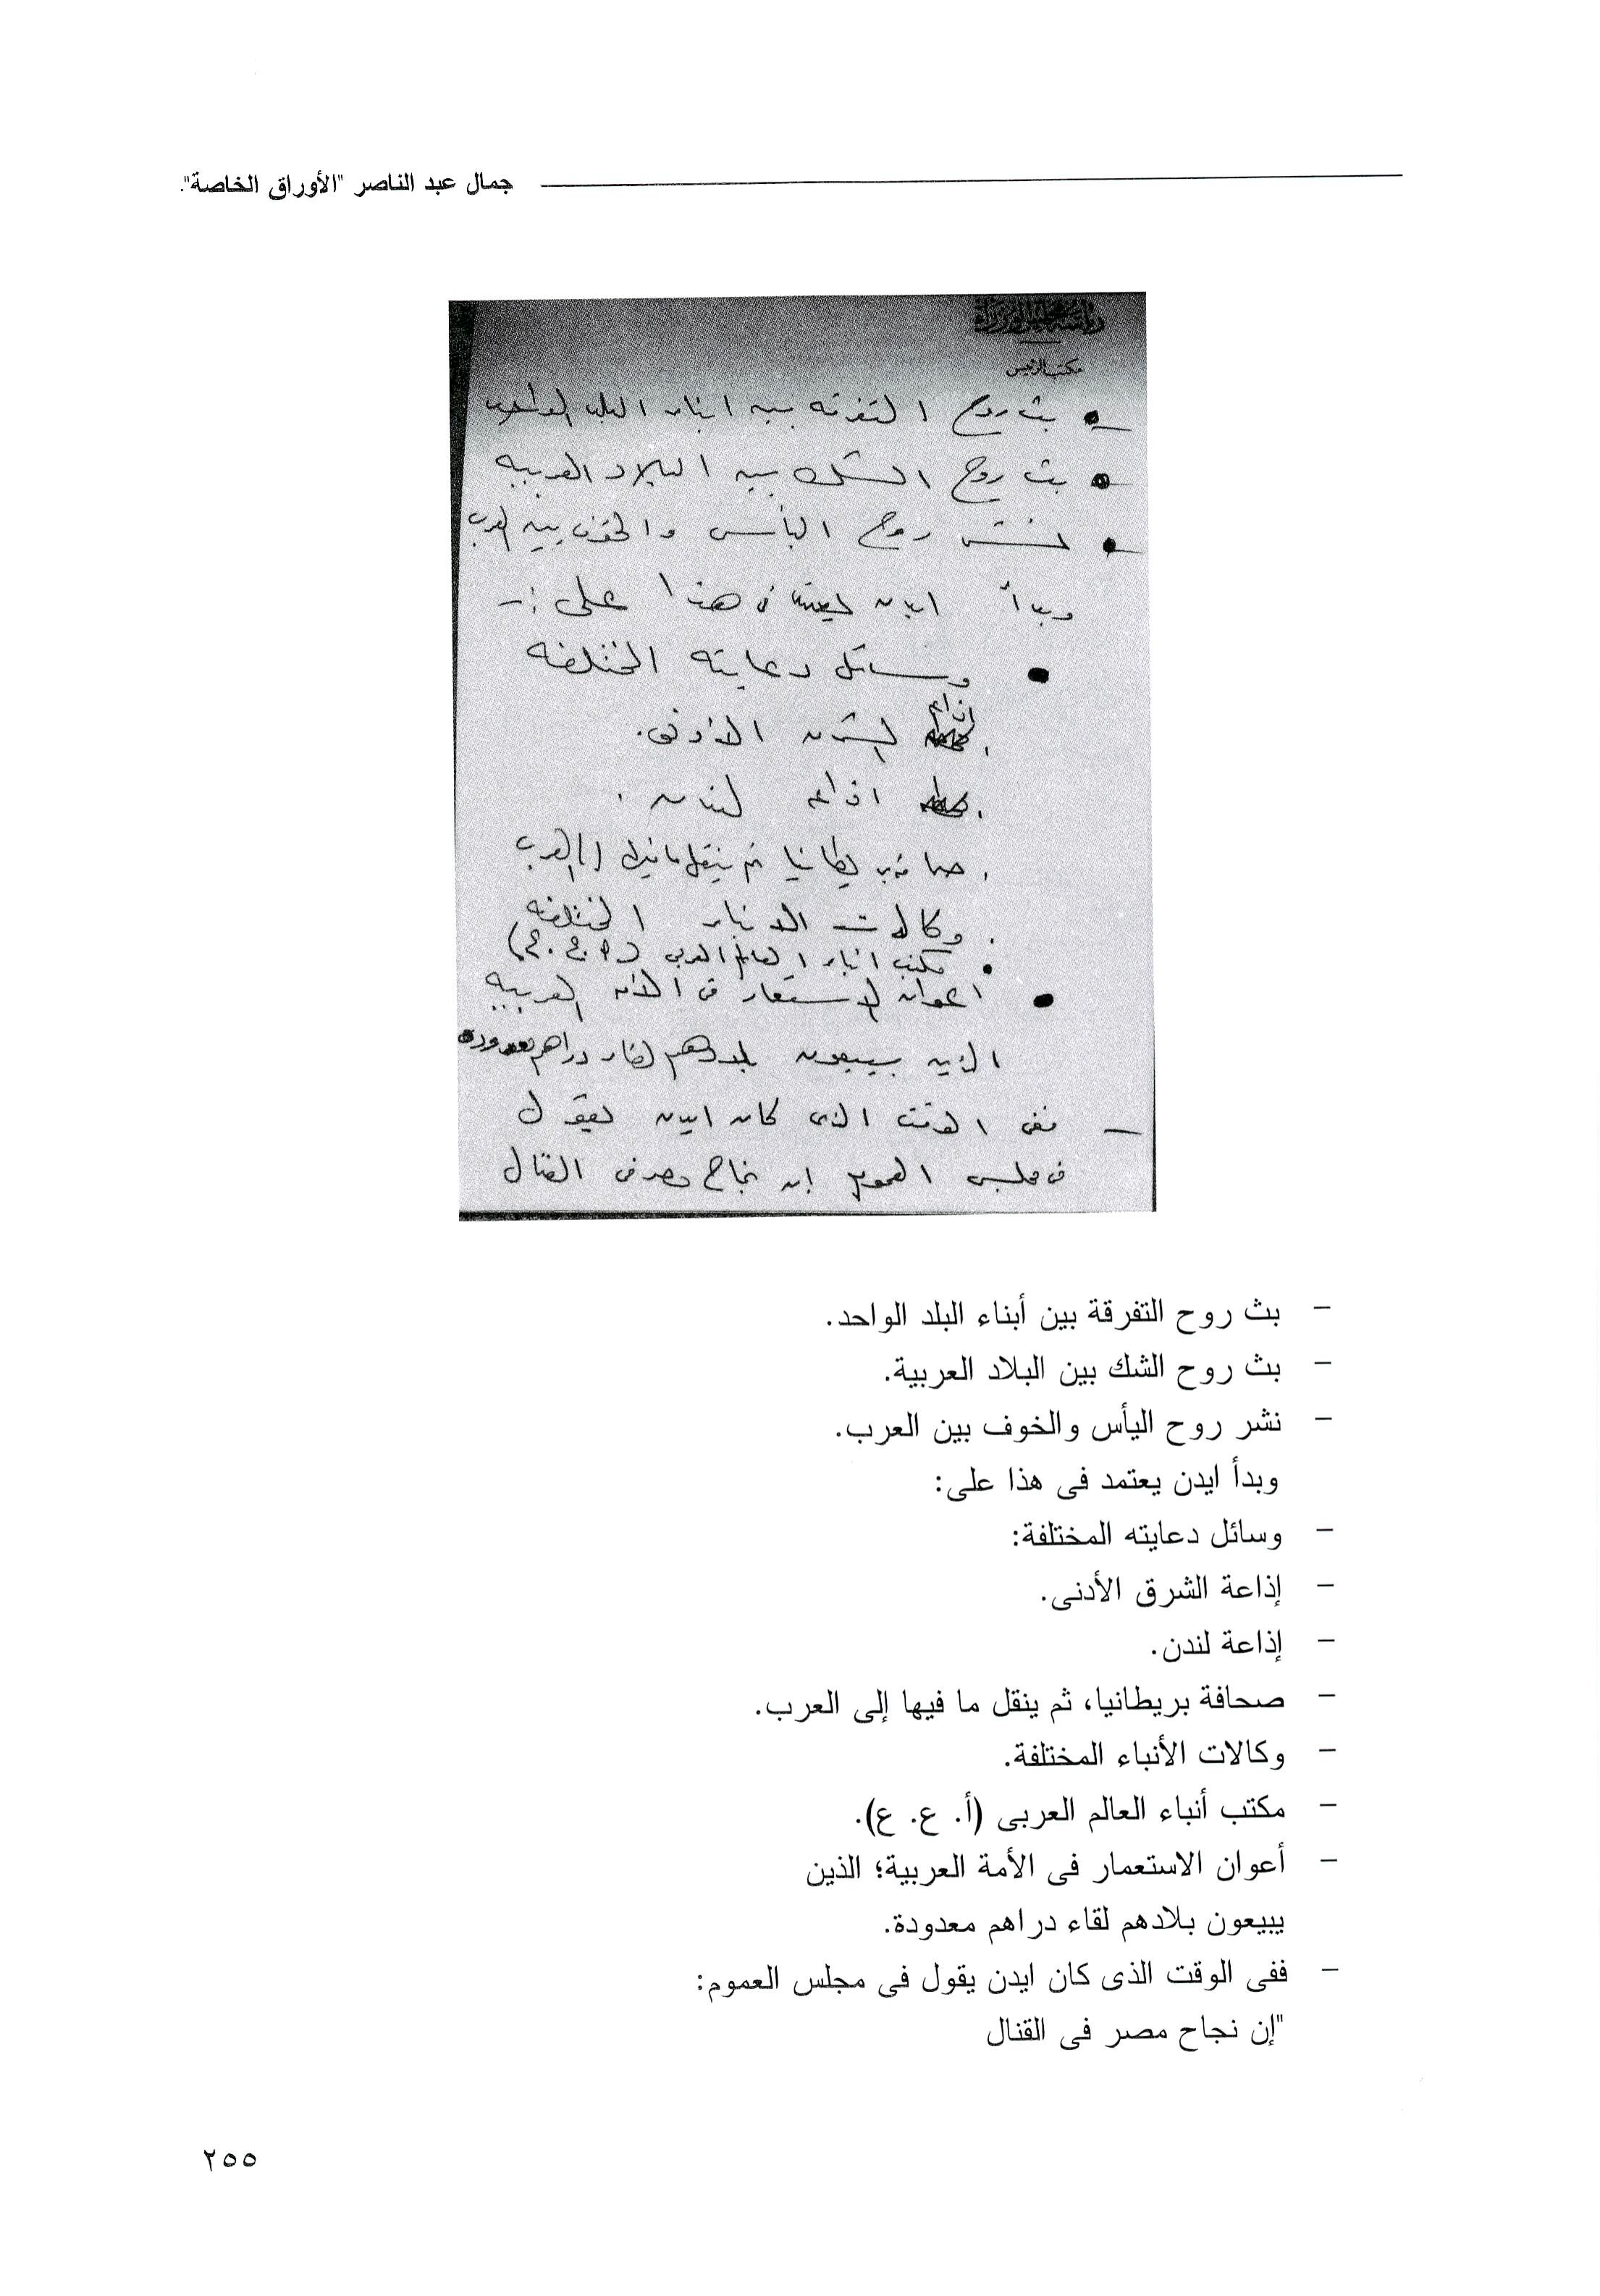 جمال عبد الناصر "الأوراق الخاصة".
رئاسة مجلس الوزراء
مكتب الرئيس
بث روح التفرقه بين ابناء البلد الواحد
بث روح الشك بين البلاد العربيه
نشر روح اليأس والخوف بين العرب
وبدأ ايدن يعتمد فى هذا على :-
وسائل دعايته المختلفه
. اذاعه الشرق الأدنى .
. اذاعه لندن .
. صحافة بريطانيا ثم ينقل ما فيها إلى العرب
. وكالات الانباء المختلفه
مكتب انباء العالم العربى (أ. ع. ع)
اعوان الاستعمار فى الأمه العربيه
الذين يبيعون بلادهم لقاء دراهم معدوده
— ففى الوقت الذى كان ايدن يقول
فى مجلس العموم إن نجاح مصر فى القنال
- بث روح التفرقة بين أبناء البلد الواحد.
- بث روح الشك بين البلاد العربية.
- نشر روح اليأس والخوف بين العرب.
وبدأ ايدن يعتمد فى هذا على:
- وسائل دعايته المختلفة:
- إذاعة الشرق الأدنى.
- إذاعة لندن.
- صحافة بريطانيا، ثم ينقل ما فيها إلى العرب.
- وكالات الأنباء المختلفة.
- مكتب أنباء العالم العربى (أ. ع. ع).
- أعوان الاستعمار فى الأمة العربية؛ الذين
يبيعون بلادهم لقاء دراهم معدودة.
- ففى الوقت الذى كان ايدن يقول فى مجلس العموم:
"إن نجاح مصر فى القنال
٢٥٥